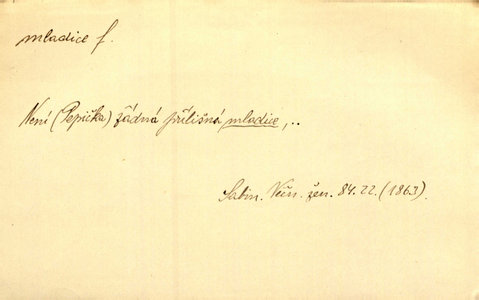 mladice f.
Není (Pepička) žádná přílišná mladice,..
Sabin. Věčn. žen. 84.22. (1863).